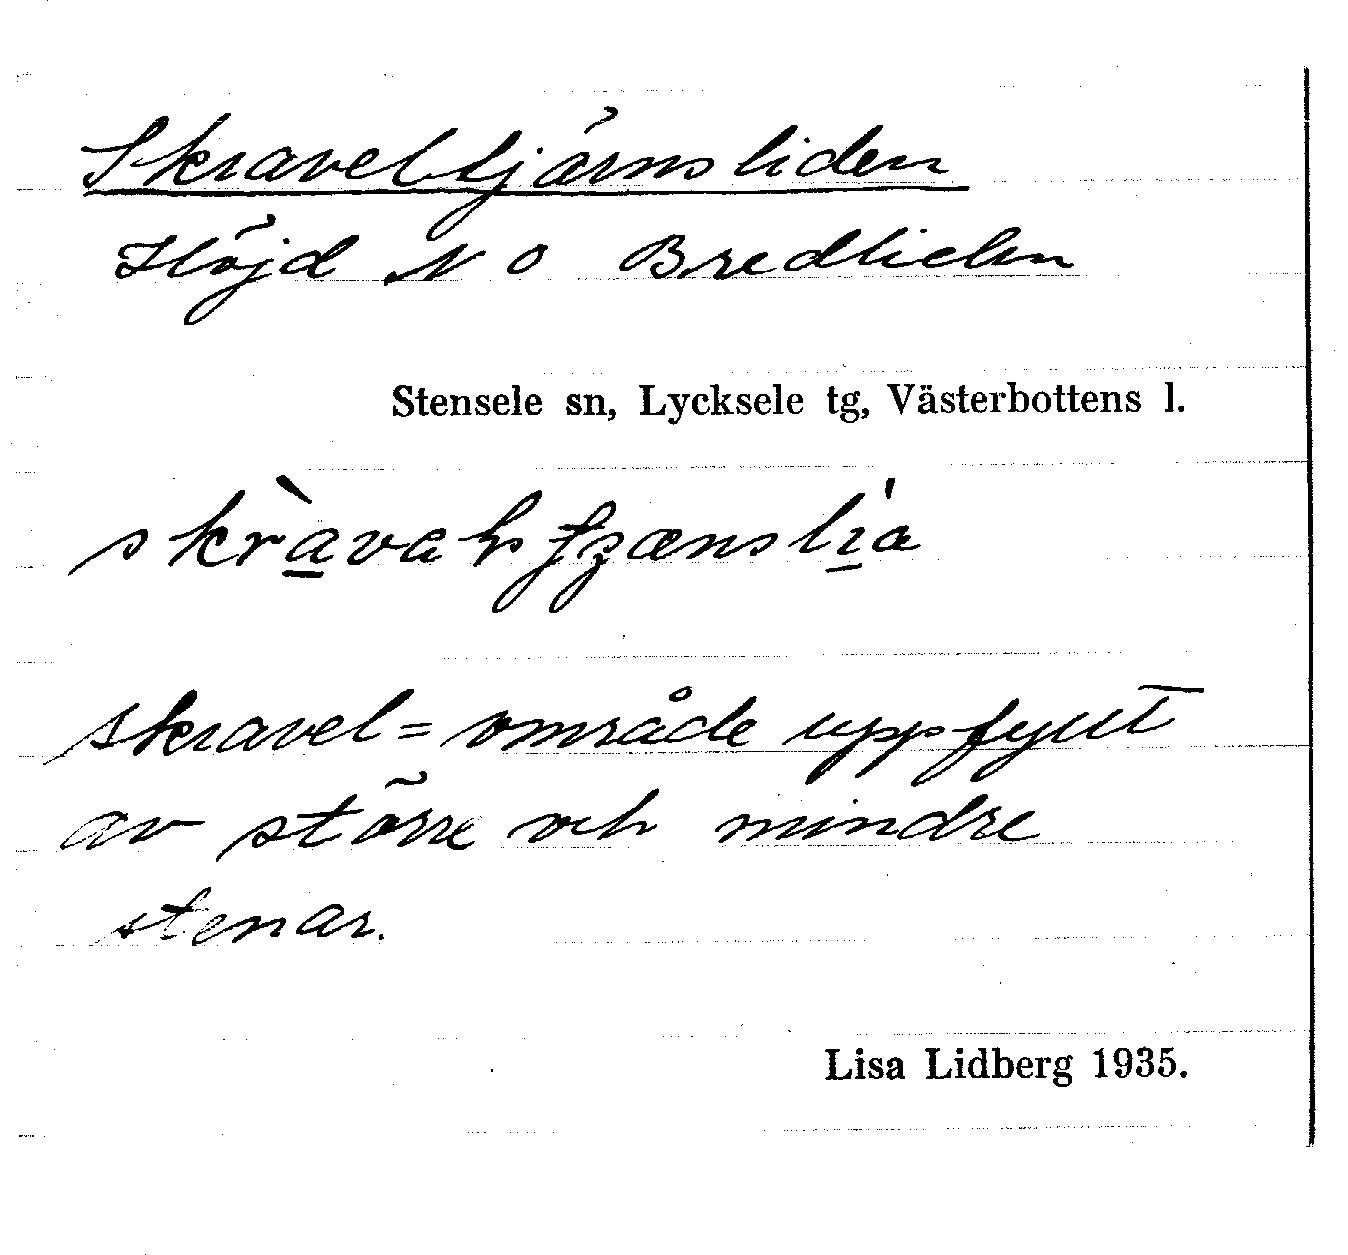 Skraveltjärnsliden
Höjd N O Bredliden
Stensele sn, Lycksele tg, Västerbottens l.
skravel = område uppfyllt
av större och mindre
stenar.
Lisa Lidberg 1935.